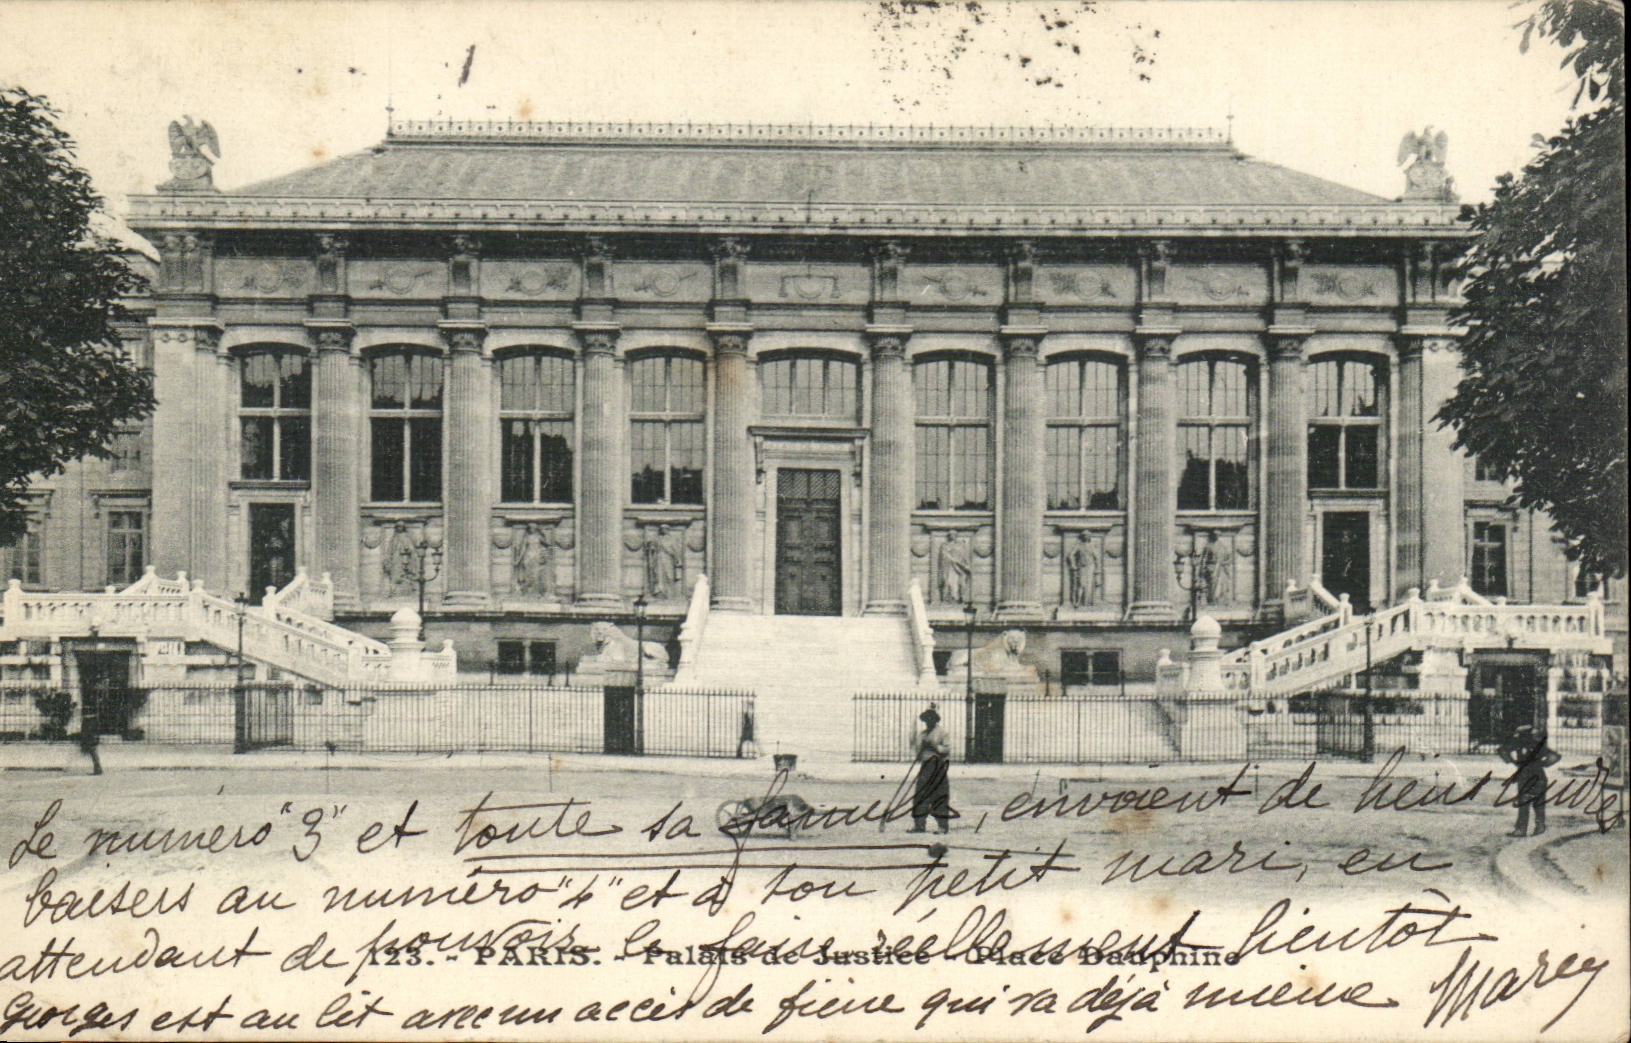 Le numéro "3" et toute sa famille, envoient de biens tendres
baisers au numéro "4" et à son petit mari, en
attendant de pouvoir le faire réellement bientôt
123. - PARIS. - Palais de Justice - Place Dauphine
Georges est au lit avec un accès de fièvre qui va déjà mieux Marcy